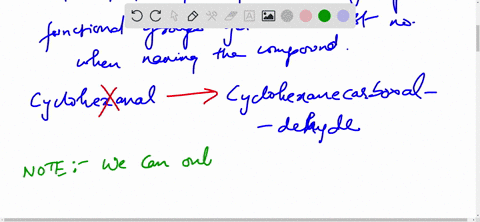 functional groups
when naming the compound.
Cyclohexanal → Cyclohexanecarboxal-
-dehyde
NOTE:- We can onl